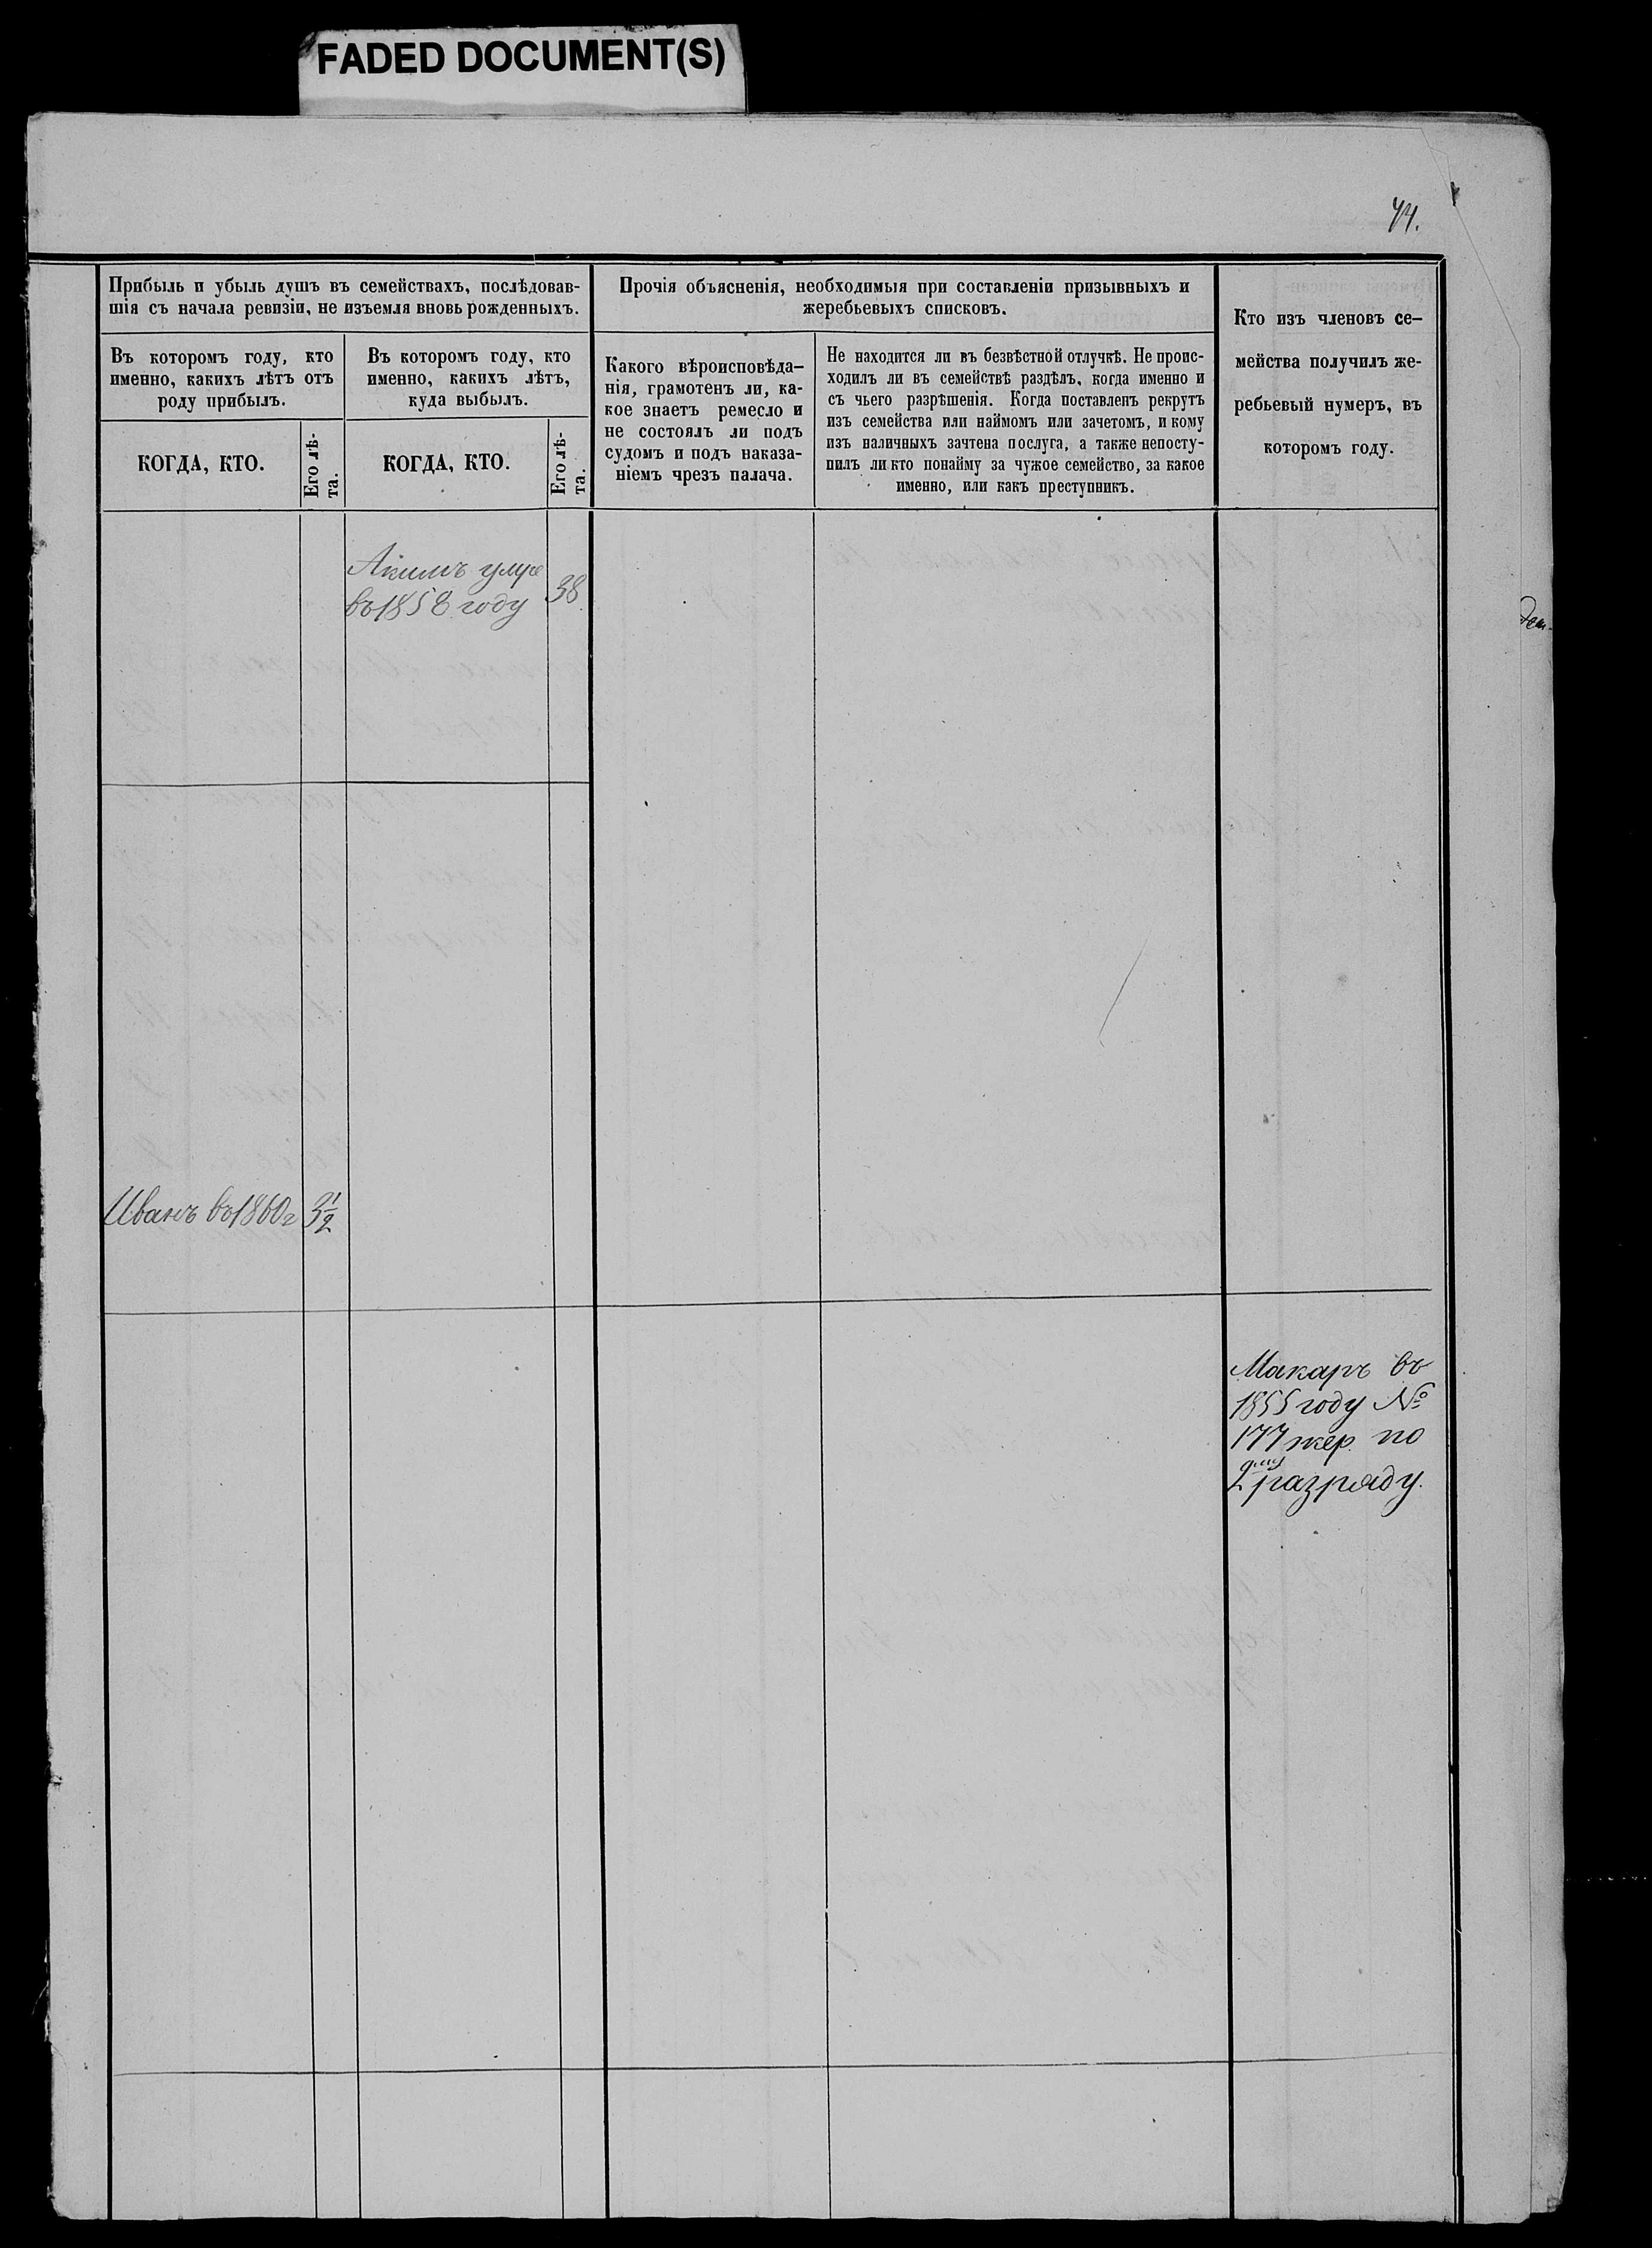 FADED DOCUMENT(S)
44.
Прибыль и убыль душъ въ семействахъ, послѣдовав-
шія съ начала ревизіи, не изъемля вновь рожденныхъ.
Въ которомъ году, кто
именно, какихъ лѣтъ отъ
роду прибылъ.
КОГДА, КТО.
Его лѣ-
та.
Въ которомъ году, кто
именно, какихъ лѣтъ,
куда выбылъ.
КОГДА, КТО.
Его лѣ-
та.
Прочія объясненія, необходимыя при составленіи призывныхъ и
жеребьевыхъ списковъ.
Какого вѣроисповѣда-
нія, грамотенъ ли, ка-
кое знаетъ ремесло и
не состоялъ ли подъ
судомъ и подъ наказа-
ніемъ чрезъ палача.
Не находится ли въ безвѣстной отлучкѣ. Не проис-
ходилъ ли въ семействѣ раздѣлъ, когда именно и
съ чьего разрѣшенія. Когда поставленъ рекрутъ
изъ семейства или наймомъ или зачетомъ, и кому
изъ наличныхъ зачтена послуга, а также непосту-
пилъ ли кто понайму за чужое семейство, за какое
именно, или какъ преступникъ.
Кто изъ членовъ се-
мейства получилъ же-
ребьевый нумеръ, въ
которомъ году.
Акимъ умре
въ 1858 году 38
Иванъ въ 1860 г 3 1/2
Макаръ въ
1855 году №
177 жер. по
2му разряду.